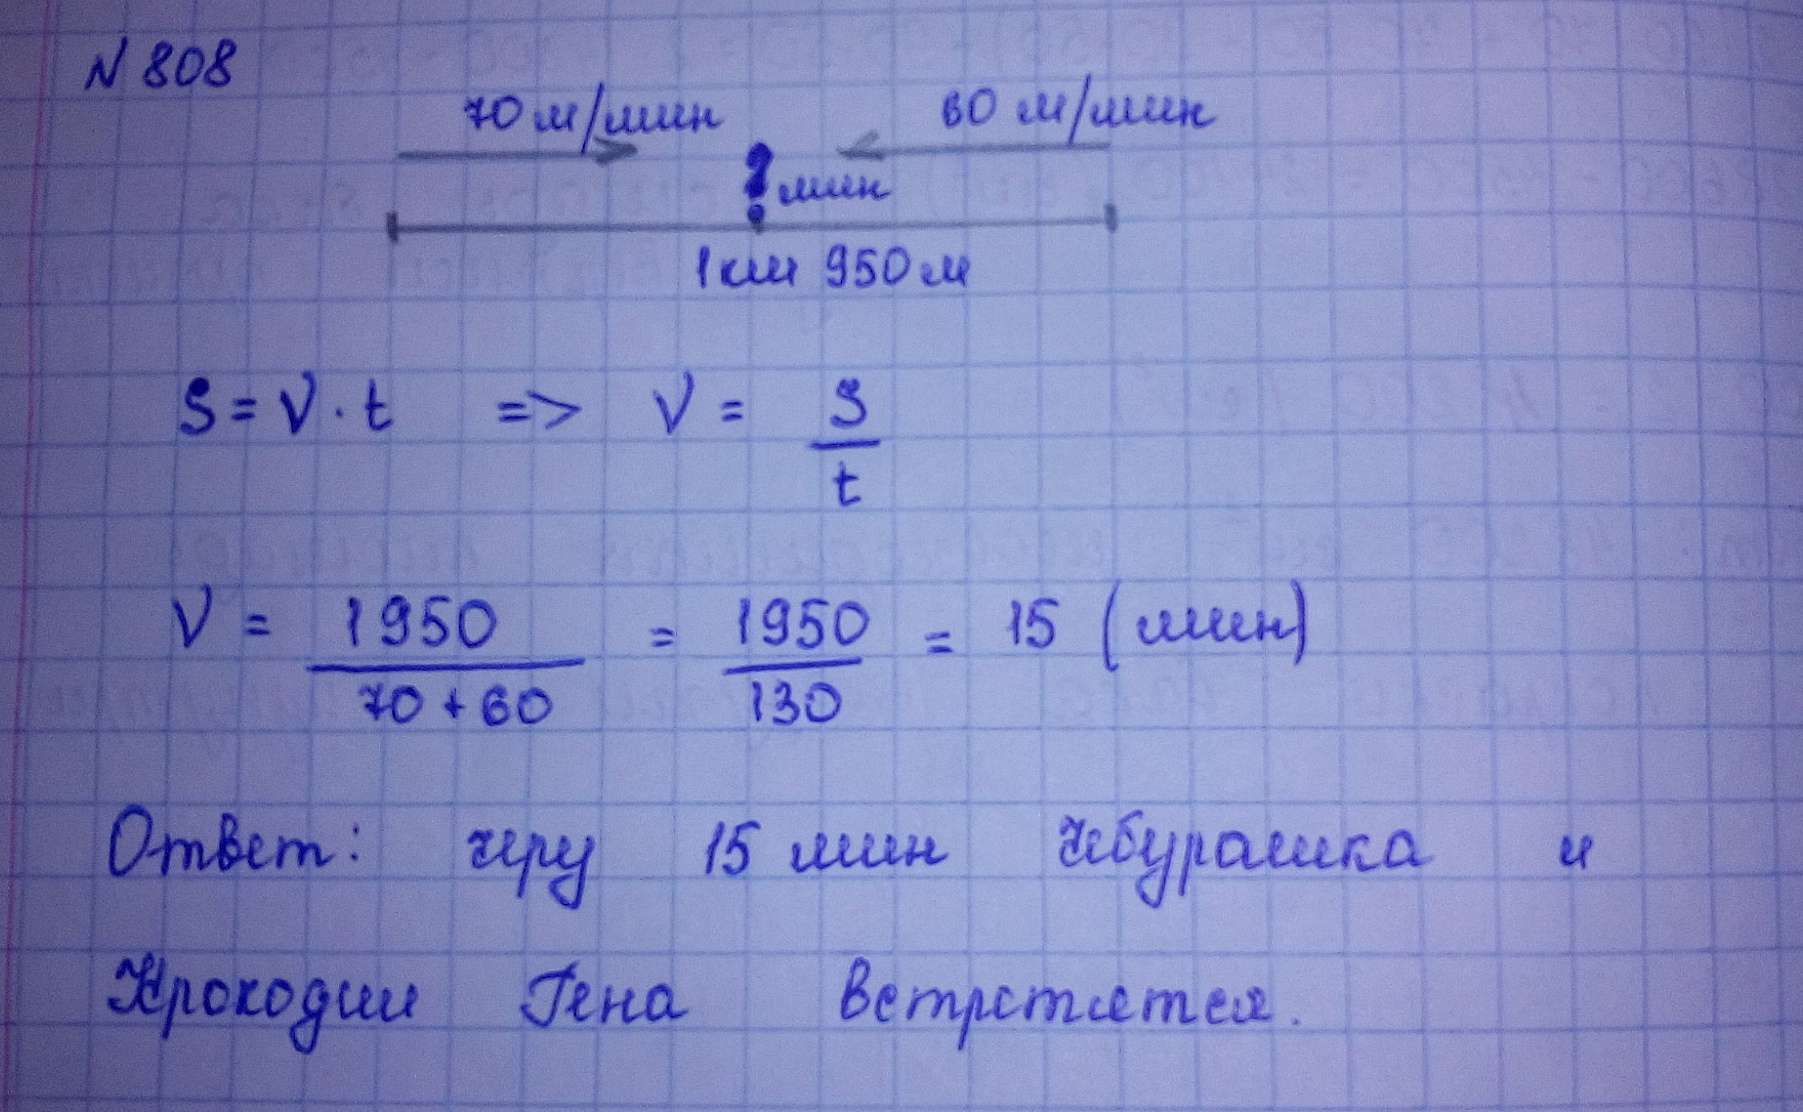 N 808
70 м/мин 60 м/мин
? мин
1 км 950 м
S = V · t => V = S/t
V = 1950/(70 + 60) = 1950/130 = 15 (мин)
Ответ: черу 15 мин Чебурашка и
Крокодил Гена встретятся.